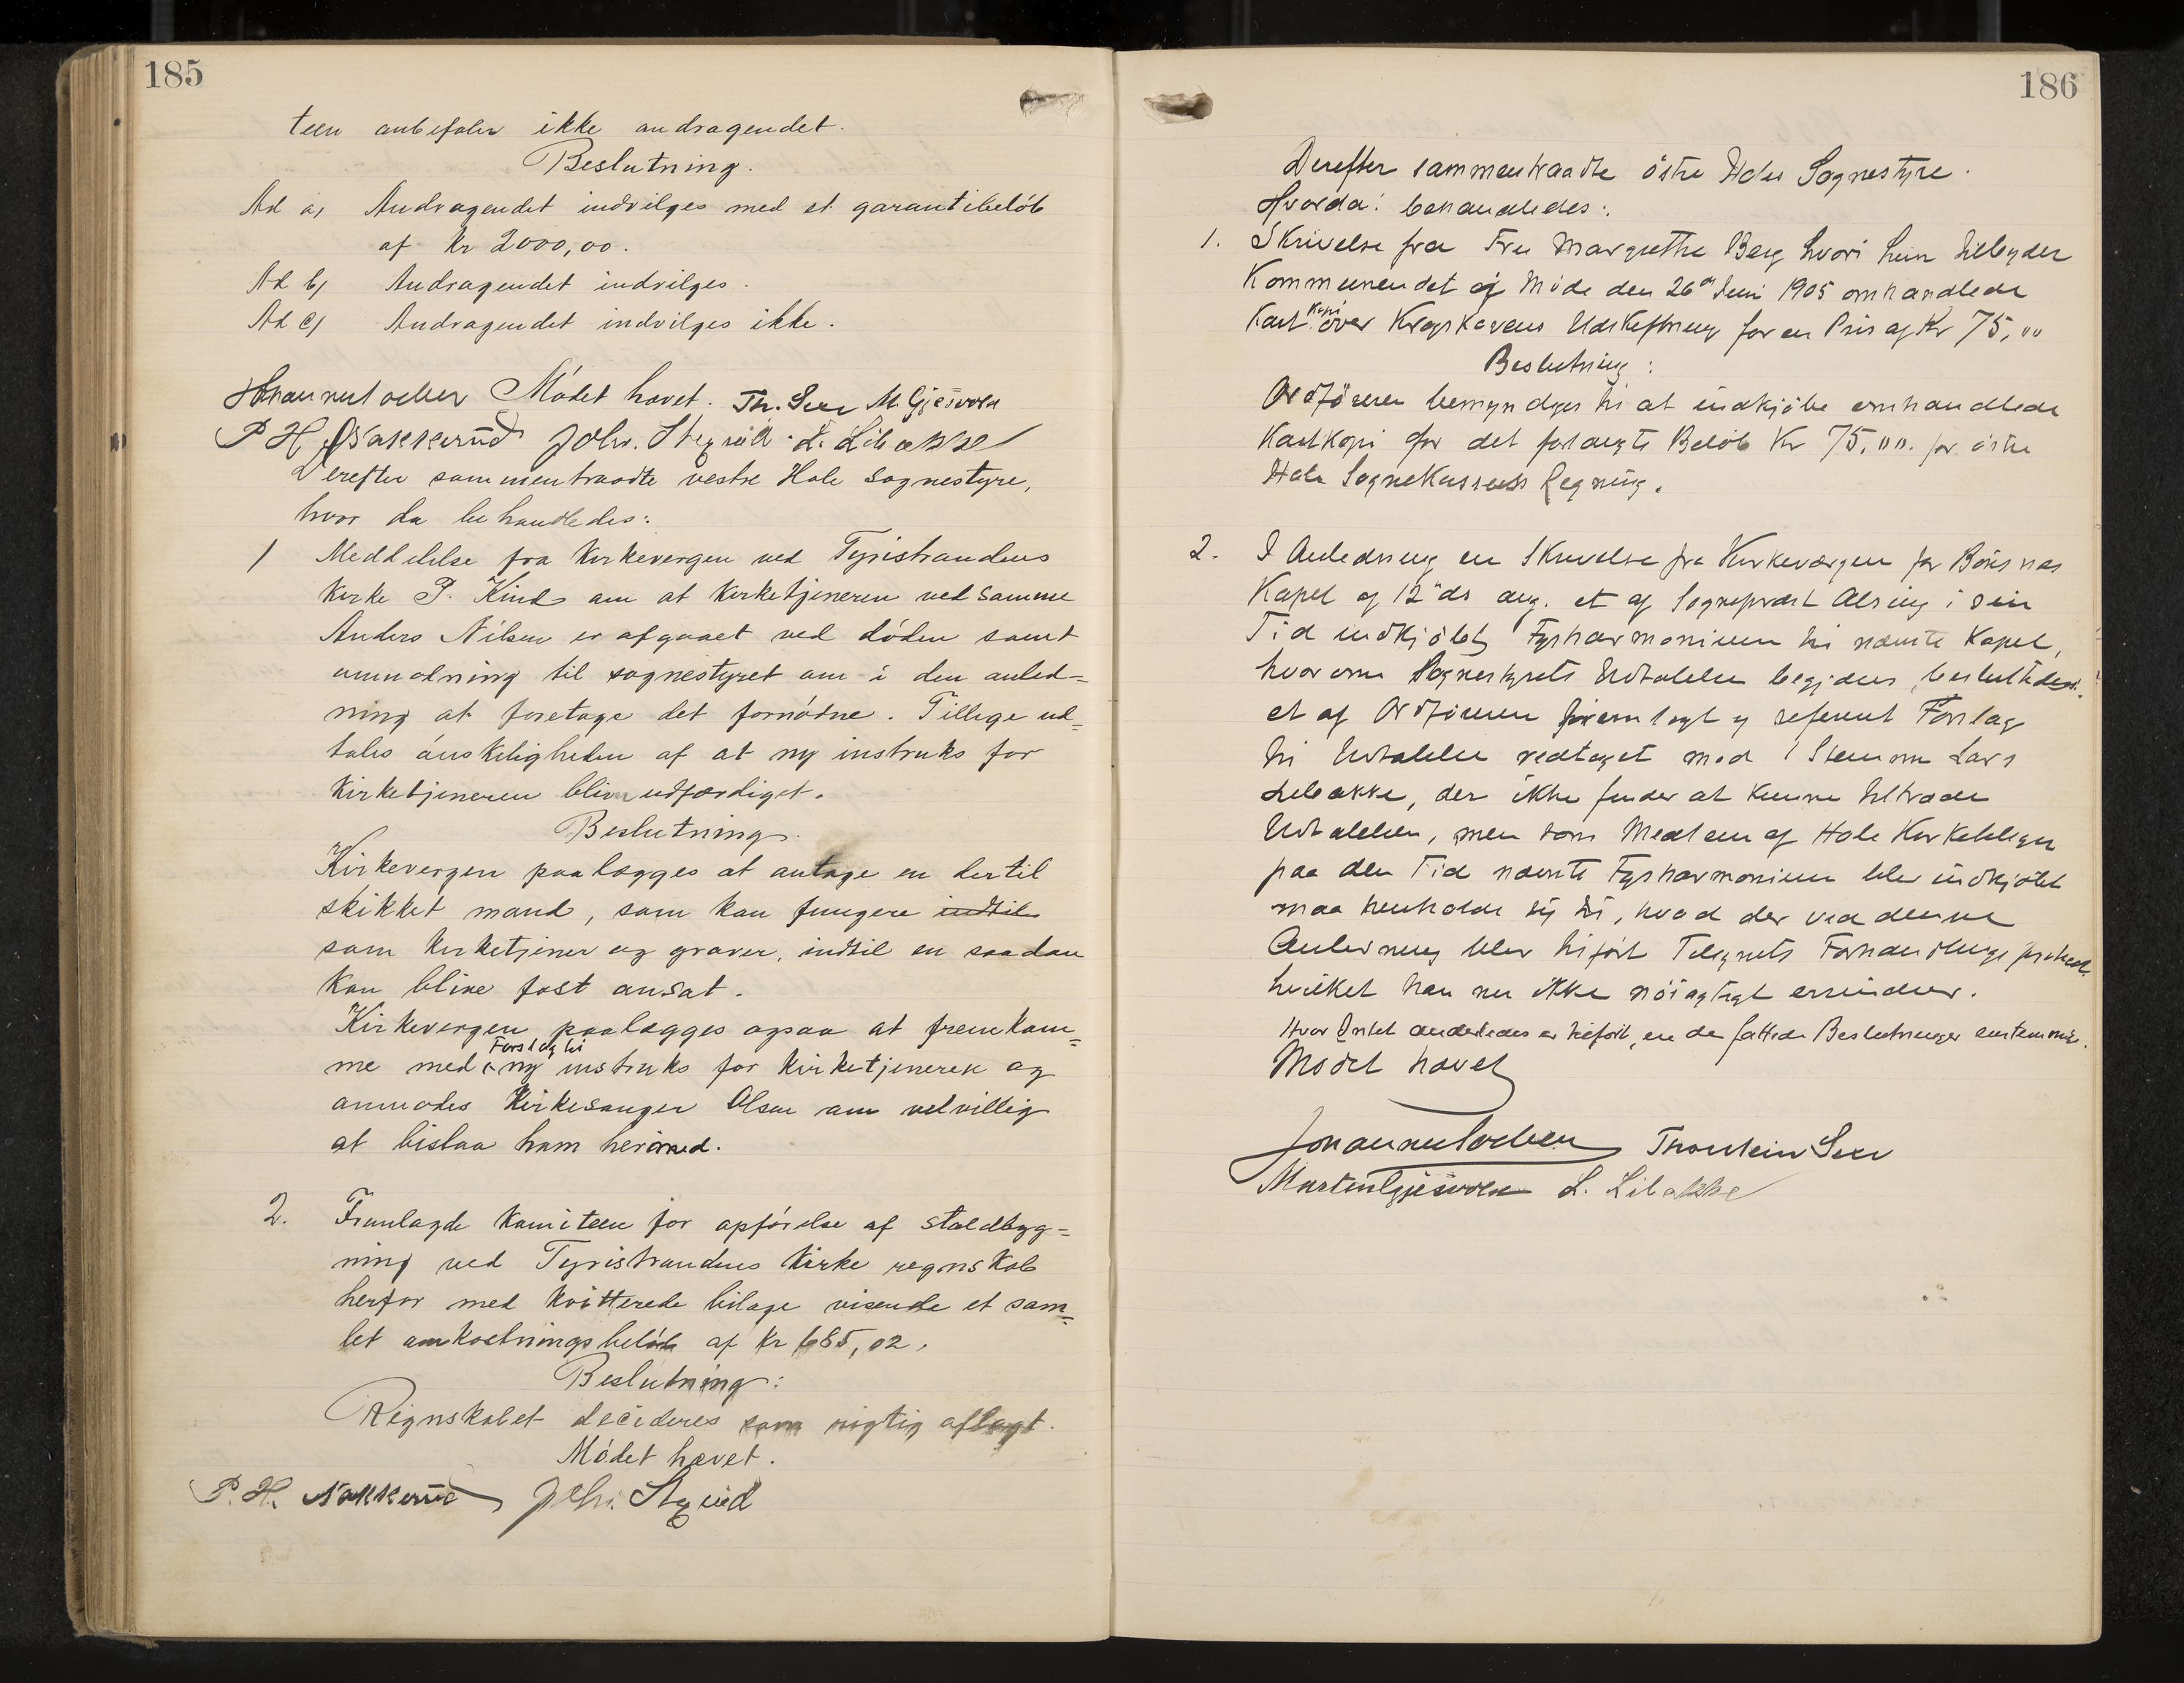 185
teen anbefaler ikke andragendet.
Beslutning.
Ad a, Andragendet indvilges med et garantibeløb
af Kr 2000,00.
Ad b, Andragendet indvilges.
Ad c, Andragendet indvilges ikke.
Mødet hævet. Th. Seer M. Gjesvold
P H Nakkerud Johs. Stixrud L. Libakke
Derefter sammentraadte vestre Hole sognestyre,
hvor da behandledes:
1 Meddelelse fra Kirkevergen ved Tyristrandens
Kirke P. Kind om at Kirketjeneren ved samme
Anders Nilsen er afgaaet ved døden samt
anmodning til sognestyret om i den anled=
ning at foretage det fornødne. Tillige ud=
tales ønskeligheden af at ny instruks for
Kirketjeneren bliver udfærdiget.
Beslutning.
Kirkevergen paalægges at antage en dertil
skikket mand, som kan fungere indtil
som Kirketjener og graver, indtil en saadan
kan blive fast ansat.
Kirkevergen paalægges ogsaa at fremkom=
me med Forslag til ny instruks for Kirketjeneren og
anmodes Kirkesanger Olsen om velvillig
at bistaa ham herimed.
2. Fremlagde Komiteen for opførelse af staldbyg=
ning ved Tyristrandens Kirke regnskab
herfor med Kvitterede bilage visende et sam=
let omkostningsbeløb af Kr 685,02.
Beslutning:
Regnskabet decideres som rigtig aflagt.
Mødet hævet.
P. H. Nakkerud Johs. Stixrud
186
Derefter sammentraadte østre Holes Sognestyre.
Hvorda behandledes:
1. Skrivelse fra Fru Margrethe Berg hvori hun tilbyder
Kommunen det i Møde den 26de Juni 1905 omhandlede
Kart Kopi over Krogskovens Udskiftning for en Pris af Kr 75,00
Beslutning:
Ordføreren bemyndiges til at indkjøbe omhandlede
Kartkopi for det forlangte Beløb Kr 75,00. for østre
Hole Sognekasses Regning.
2. I Anledning en Skrivelse fra Kirkeværgen for Bønsnes
Kapel af 12 ds ang. et af Sogneprest Alsing i sin
Tid indkjøbt Fysharmonium til nævnte Kapel,
hvorom Sognestyrets Udtalelse begjæres, besluttedes
et af Ordføreren fremlagt og referert Forslag
til Udtalelse vedtaget mod 1 Stemme Lars
Libakke, der ikke finder at kunne tiltræde
Udtalelsen, men som Medlem af Hole Kirketilsyn
paa den Tid nævnte Fysharmonium blev indkjøbt
maa henholde sig til, hvad der ved denne
Anledning blev tilført Tilsynets Forhandlingsprotokol
hvilket han nu ikke nøiagtigt erindrer.
Hvor Intet anderledes er tilført, ere de fattede Beslutninger enstemmige.
Mødet hævet
Thorstein Seer
Martin Gjesvold L. Libakke